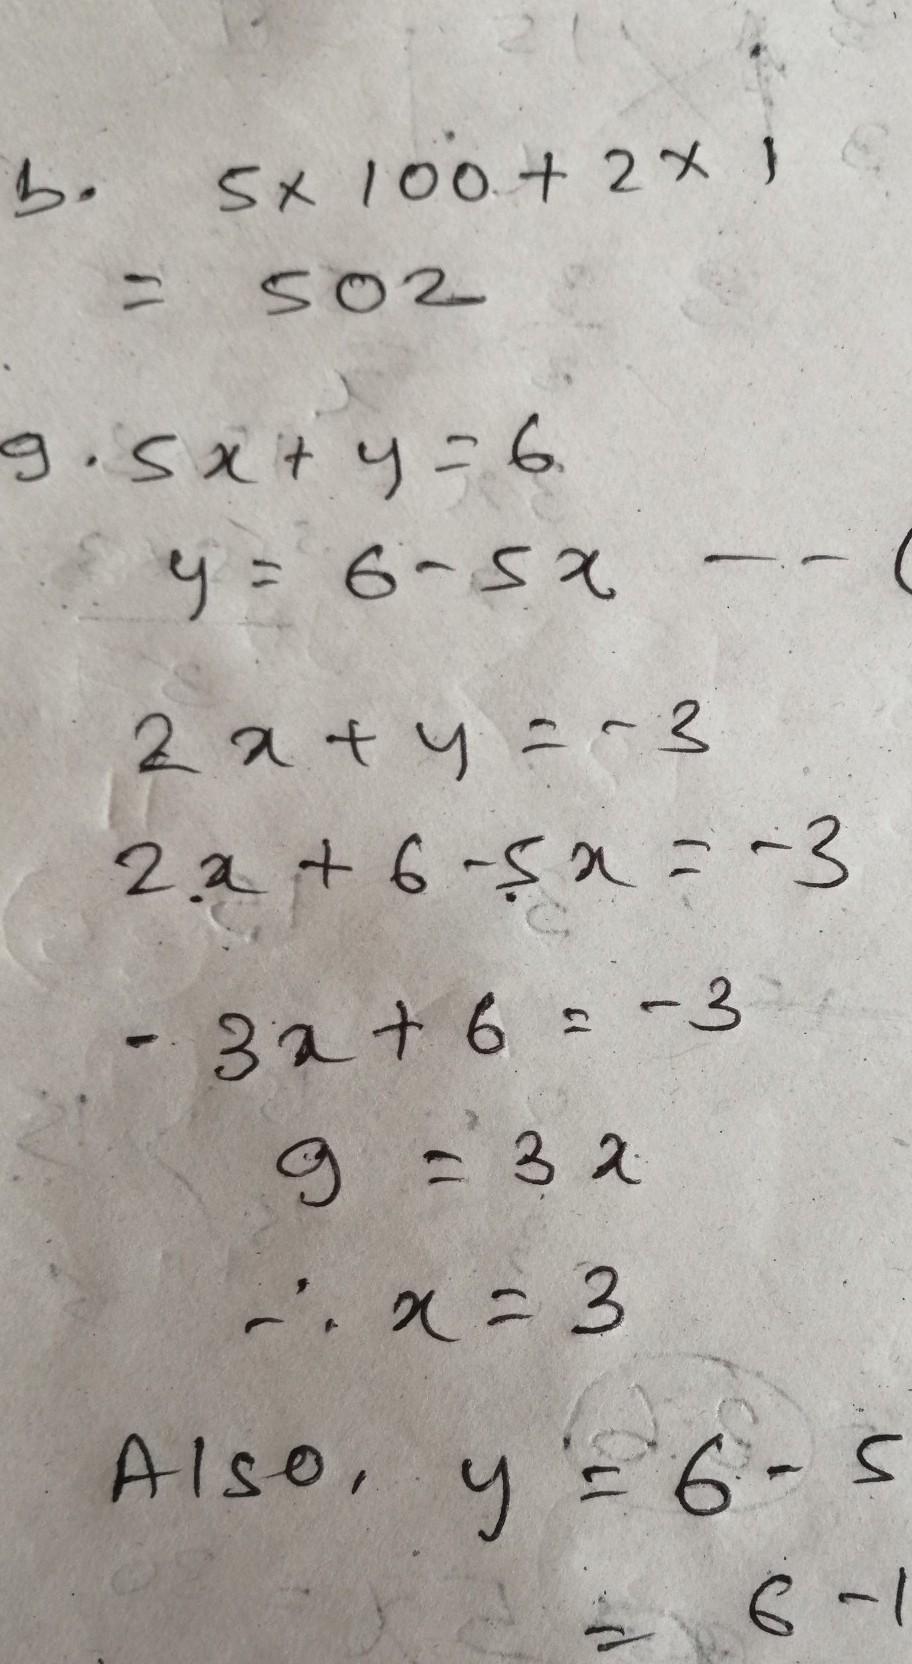 b. 5x 100 + 2 x 1
= 502
9. 5x + y = 6
y = 6 - 5x -- (
2x + y = -3
2x + 6 - 5x = -3
- 3x + 6 = -3
9 = 3x
∴ x = 3
Also, y = 6 - 5
= 6 - 1